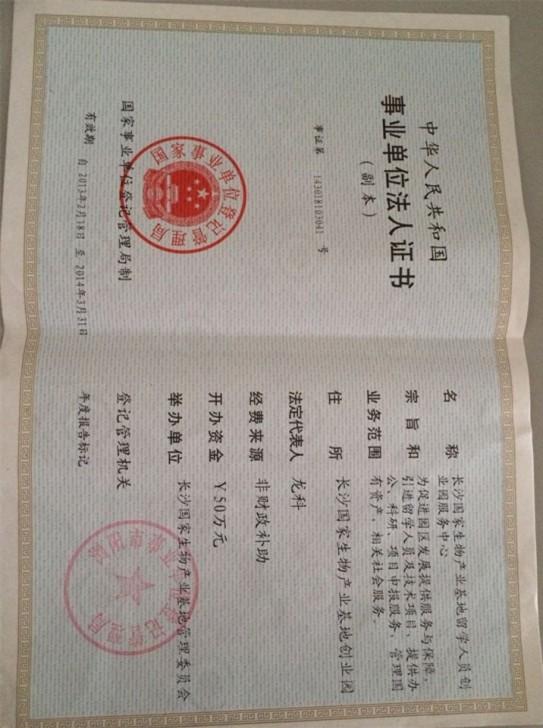 中华人民共和国
事业单位法人证书
（副本）
事证第 143018103041 号
国家事业单位登记管理局
国家事业单位登记管理局制
有效期 自2013年2月18日至2014年3月31日
名称 长沙国家生物产业基地留学人员创
业园服务中心
宗旨和 为促进园区发展提供服务与保障。
业务范围 引进留学人员及技术项目、提供办
公、科研、项目申报服务，管理国
有资产，相关社会服务。
住所 长沙国家生物产业基地创业园
法定代表人 龙科
经费来源 非财政补助
开办资金 ￥50万元
举办单位 长沙国家生物产业基地管理委员会
登记管理机关
浏阳市事业单位登记管理局
年度报告标记